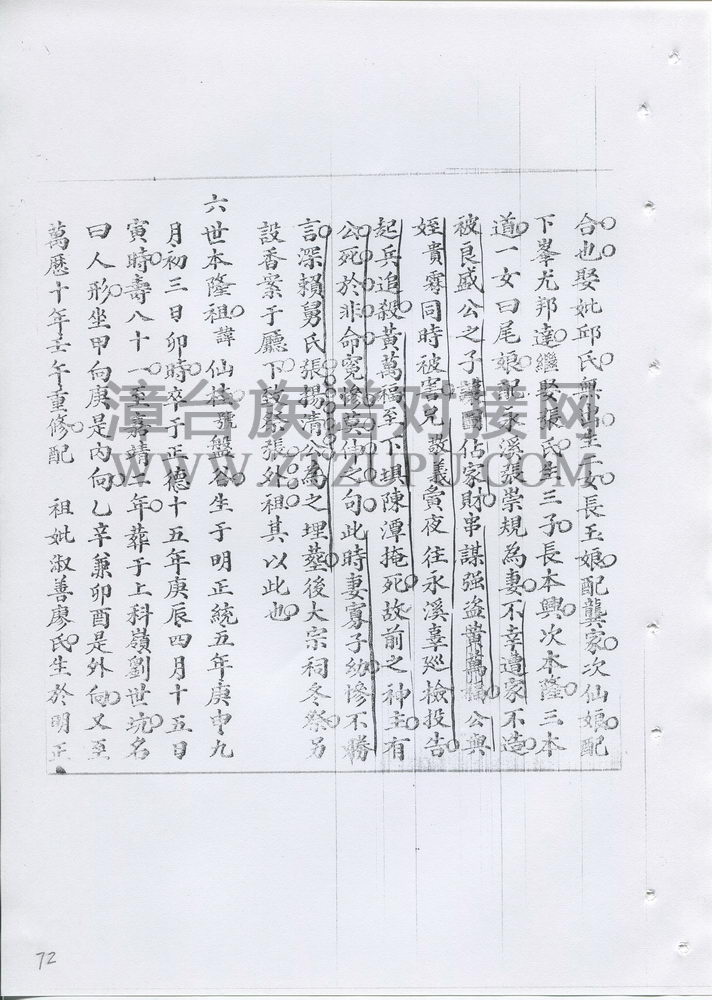 合也娶妣邱氏無出生二女長玉娘配龔家次仙娘配
下峯尤邦達繼娶張氏生三子長本興次本隆三本
道一女曰尾娘配永溪張崇規為妻不幸遭家不造
被良盛公之子 國佔家財串謀强盗黄萬福公與
姪貴 同時被害兄敦義 夜往永溪 巡檢投告
起兵追殺黄萬福至下埧陳潭掩死故前之神主有
公死於非命冤慘 之句此時妻寡子幼慘不勝
言深賴舅氏張揚清公為之埋塟後大宗祠冬祭另
設香案于廳下致祭張外祖其以此也
六世本隆祖諱仙 號盤谷生于明正統五年庚申九
月初三日卯時卒于正德十五年庚辰四月十五日
寅時壽八十一至嘉靖二年葬于上科嶺劉世坑名
曰人形坐甲向庚是内向乙辛兼卯酉是外向又至
萬歷十年壬午重修配 祖妣淑善廖氏生於明正
漳台族谱对接网
WWW.ZTZUPU.COM
72